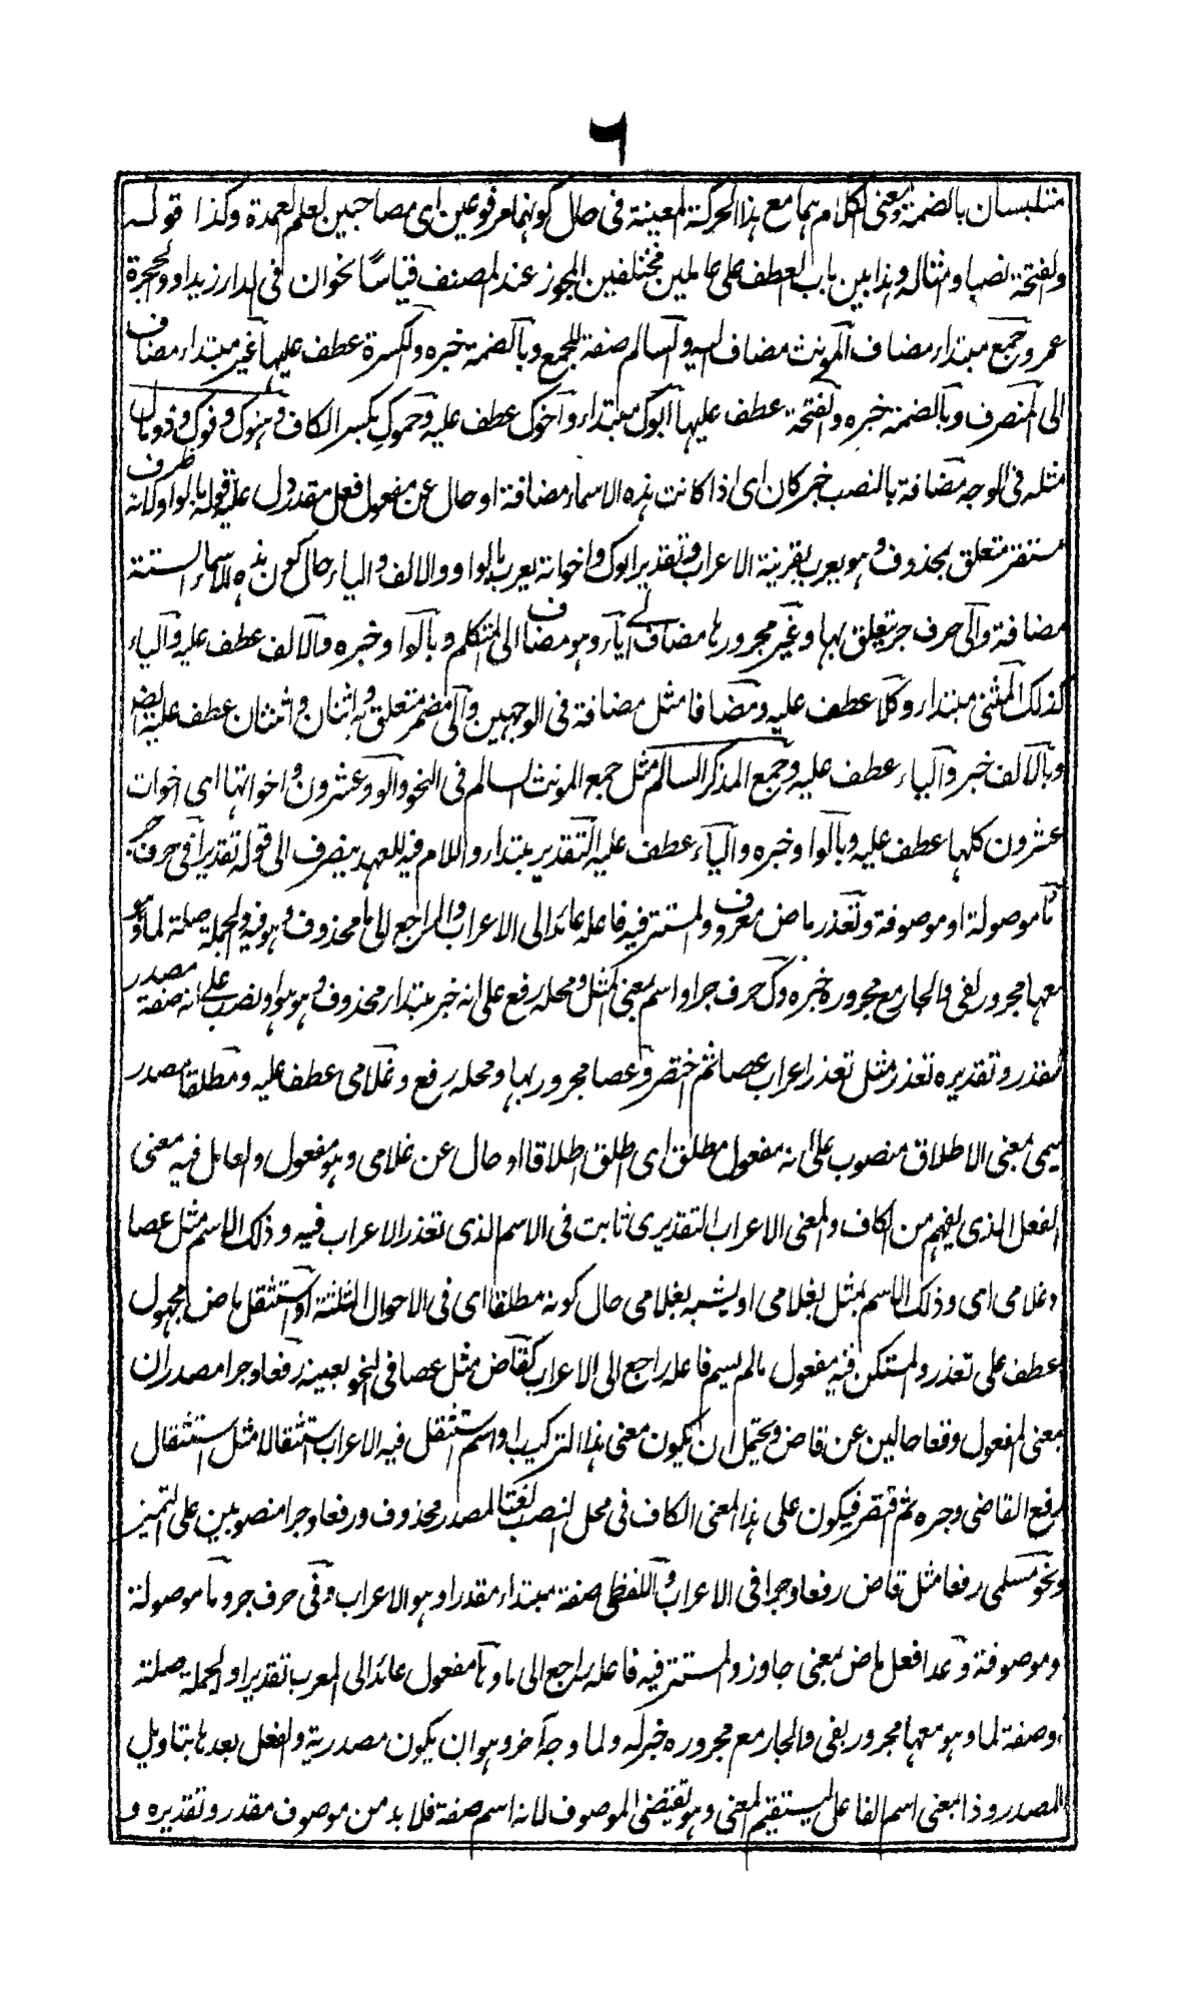 ٦
متلبسان بالضمة ومعنى الكلام هما مع هذا الحركة المعينة فى حال كونهما مرفوعين اى مصاحبين لعلم العمدة وكذا قوله
والفتحة نصبا وامثاله وهذا من باب العطف على عاملين مختلفين المجوز عند المصنف قياسًا نحو ان فى الدار زيدا والحجرة
عمرو وجمع مبتداء مضاف المونث مضاف اليه والسالم صفة للجمع وبالضمة خبره والكسرة عطف عليها غير مبتداء مضاف
الى المنصرف وبالضمة خبره والفتحة عطف عليها ابوك مبتداء واخوك عطف عليه وحموك بكسر الكاف وهنوك وفوك وذو مال
مثله فى الوجه مضافة بالنصب خبر كان اى اذا كانت هذه الاسماء مضافة او حال عن مفعول فعل مقدر دل عليه قوله بالواو لانه ظرف
مستقر متعلق بمحذوف وهو يعرب بقرينة الاعراب وتقدير ابوك واخواته يعرب بالواو والالف والياء حال كون هذه الاسماء الستة
مضافة والى حرف جر متعلق بها وغير مجرور بها مضاف الى ياء وهو مضاف الى المتكلم وبالواو خبره والالف عطف عليه والياء
كذلك المثنى مبتداء وكلا عطف عليه ومضافا مثل مضافة فى الوجهين والى مضمر متعلق به واثنان واثنتان عطف عليه ايضا
وبالالف خبر والياء عطف عليه وجمع المذكر السالم مثل جمع المونث السالم فى النحو والو وعشرون واخواتها اى اخوات
عشرون كلها عطف عليه وبالواو خبره والياء عطف عليه التقدير مبتداء واللام فيه للعهد ينصرف الى قوله تقديرا فى حرف جر
ما موصولة او موصوفة وتعذر ماض معروف والمستتر فيه فاعله عائد الى الاعراب والراجع الى ما محذوف وهو فيه والجملة صلة لما وهو
معها مجرور لفى والجار مع مجروره خبره وك حرف جر او اسم بمعنى المثل ومحله رفع على انه خبر مبتداء محذوف وهو هو او نصب على انه صفة مصدر
مقدر وتقديره تعذر مثل تعذر اعراب عصا ثم اختصر وعصا مجرور بها ومحله رفع وغلامى عطف عليه ومطلقا مصدر
ميمى بمعنى الاطلاق منصوب على انه مفعول مطلق اى اطلق اطلاقا او حال عن غلامى وهو مفعول والعامل فيه معنى
الفعل الذى يفهم من الكاف والمعنى الاعراب التقديرى ثابت فى الاسم الذى تعذر الاعراب فيه وذلك الاسم مثل عصا
وغلامى اى وذلك الاسم يمثل بغلامى او يشبه بغلامى حال كونه مطلقا اى فى الاحوال الثلثة او استثقل ماض مجهول
عطف على تعذر والمستكن فيه مفعول مالم يسم فاعله راجع الى الاعراب كقاض مثل عصا فى النحو بعينه رفعا وجرا مصدران
بمعنى المفعول وقعا حالين عن قاض ويحتمل ان يكون معنى هذا التركيب او اسم استثقل فيه الاعراب استثقالا مثل استثقال
رفع القاضى وجره ثم اقتصر فيكون على هذا المعنى الكاف فى محل النصب نعتا لمصدر محذوف ورفعا وجرا منصوبين على التميز
ونحو مسلمى رفعا مثل قاض رفعا وجرا فى الاعراب واللفظى صفة مبتداء مقدر او هو الاعراب وفى حرف جر وما موصولة
وموصوفة وعدا فعل ماض بمعنى جاوز والمستتر فيه فاعله راجع الى ما وها مفعول عائد الى المعرب تقديرا والجملة صلة
اوصفة لما وهو معها مجرور بفى والجار مع مجروره خبر له ولما وجه آخر وهو ان يكون مصدرية والفعل بعدها بتاويل
المصدر وذا بمعنى اسم الفاعل ليستقيم المعنى وهو تقتضى الموصوف لانه اسم صفة فلا بد من موصوف مقدر وتقديره و